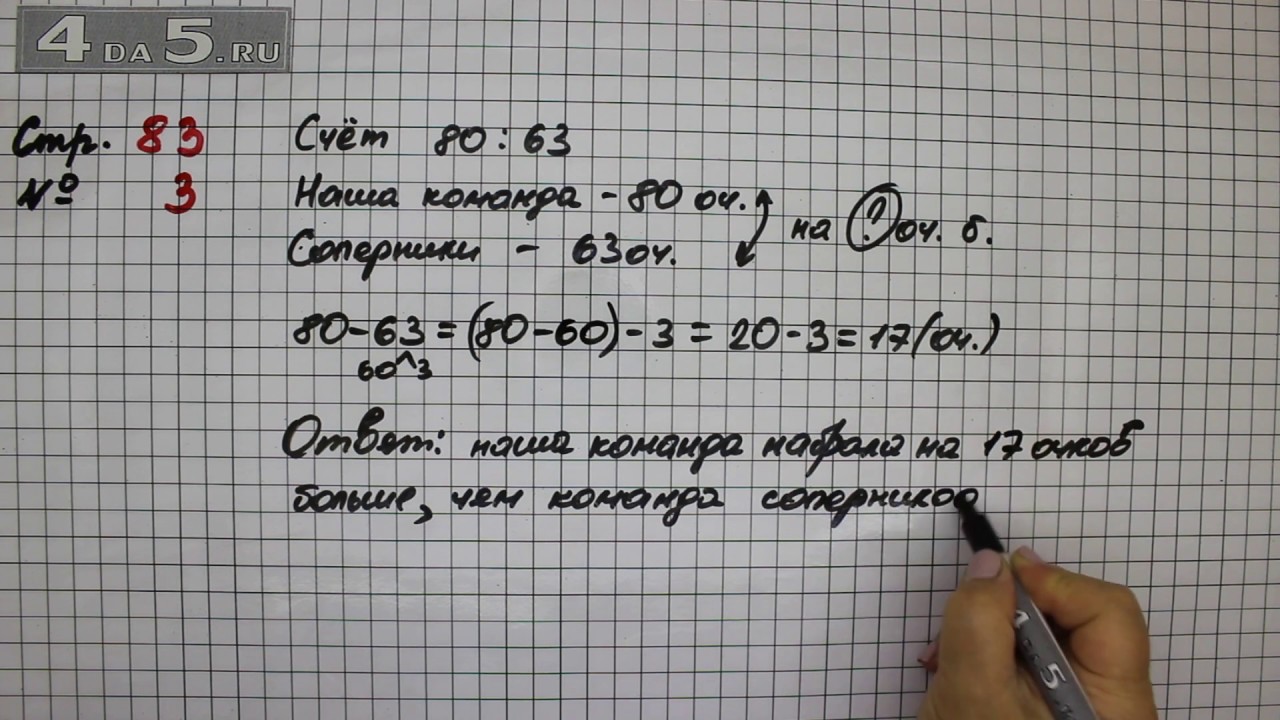 4DA5.RU
Стр. 83
№ 3
Счёт 80 : 63
Наша команда - 80 оч.
Соперники - 63 оч.
на ? оч. б.
80-63 = (80-60)-3 = 20-3 = 17 (оч.)
60^3
Ответ: наша команда набрала на 17 очков
больше, чем команда соперников
5